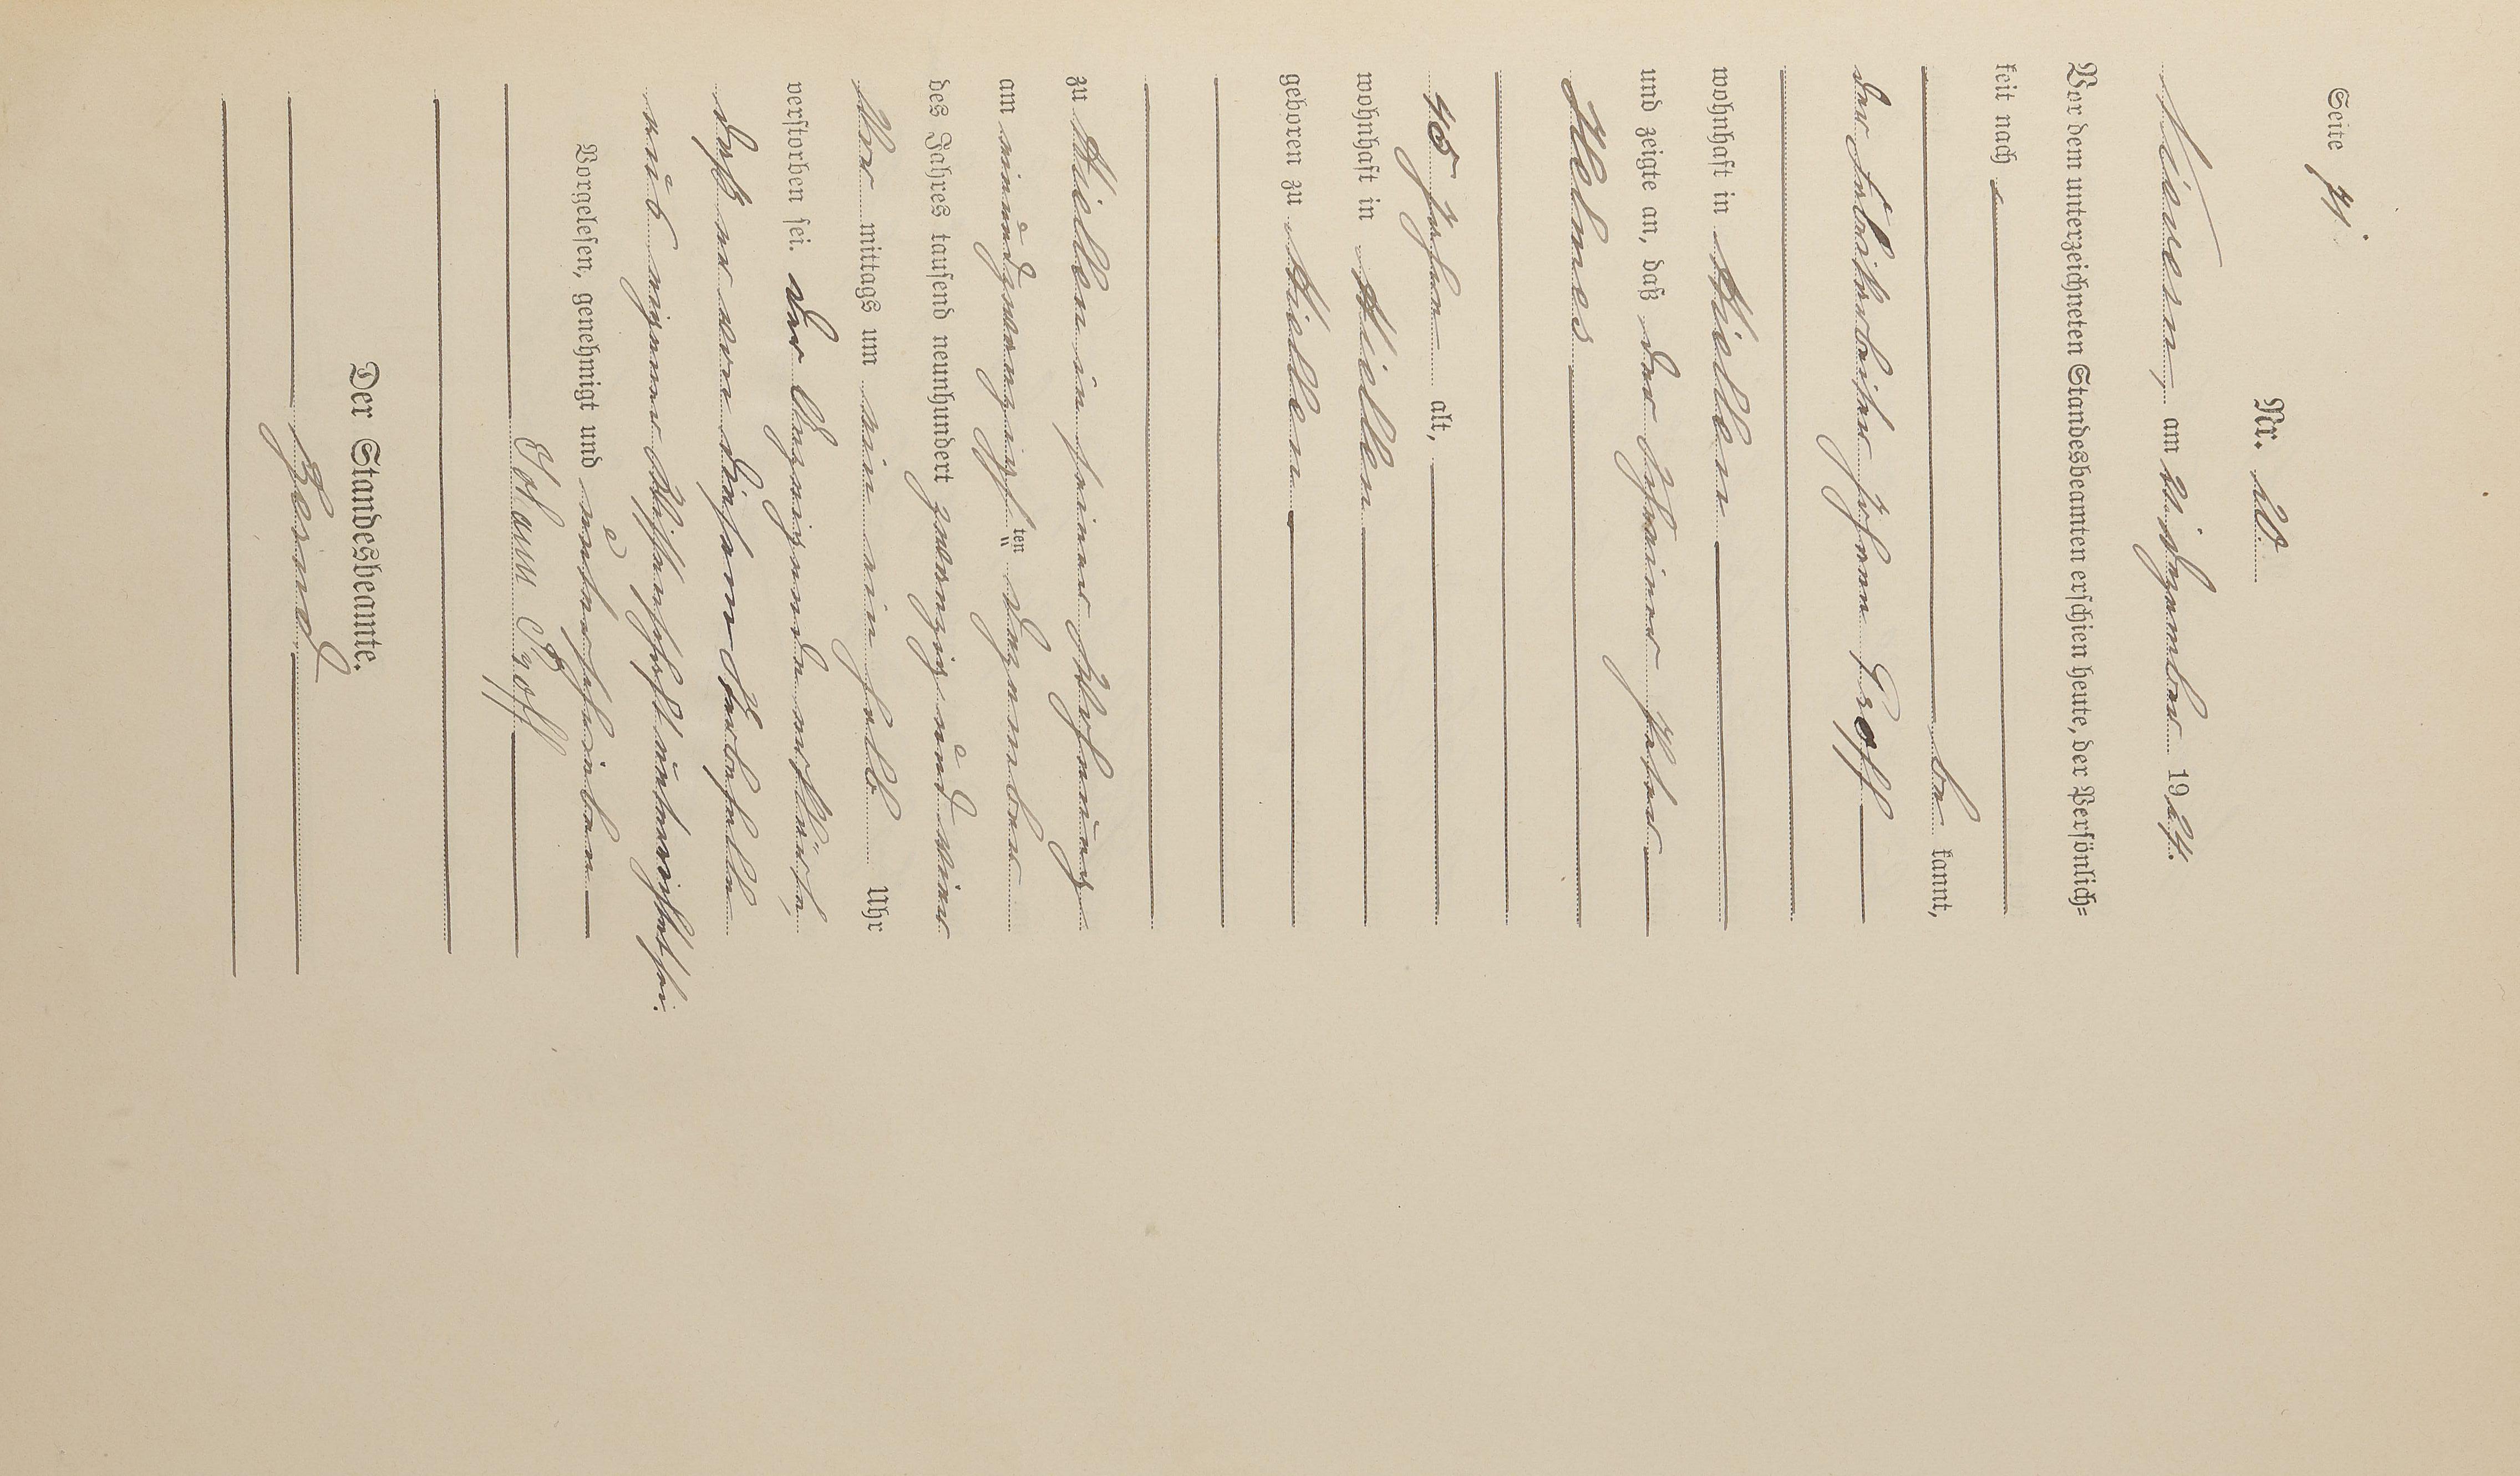 Seite 71.
Nr. 20.
Nievern, am 22 Dezember 1924.
Vor dem unterzeichneten Standesbeamten erschien heute, der Persönlich-
keit nach
be kannt,
der Fabrikarbeiter Johann Groff
wohnhaft in Miellen
und zeigte an, daß der Schreiner Peter
Helmes
Jahre alt,
wohnhaft in Miellen
geboren zu Miellen
zu Miellen in seiner Wohnung
am einundzwanzigsten Dezember
des Jahres tausend neunhundert zwanzig und vier
Vor mittags um ein ein halb Uhr
verstorben sei. Der Anzeigende erklärte,
daß er von diesem Sterbefalle
aus eigener Wissenschaft unterrichtet sei.
Vorgelesen, genehmigt und unterschrieben
Johann Groff
Der Standesbeamte.